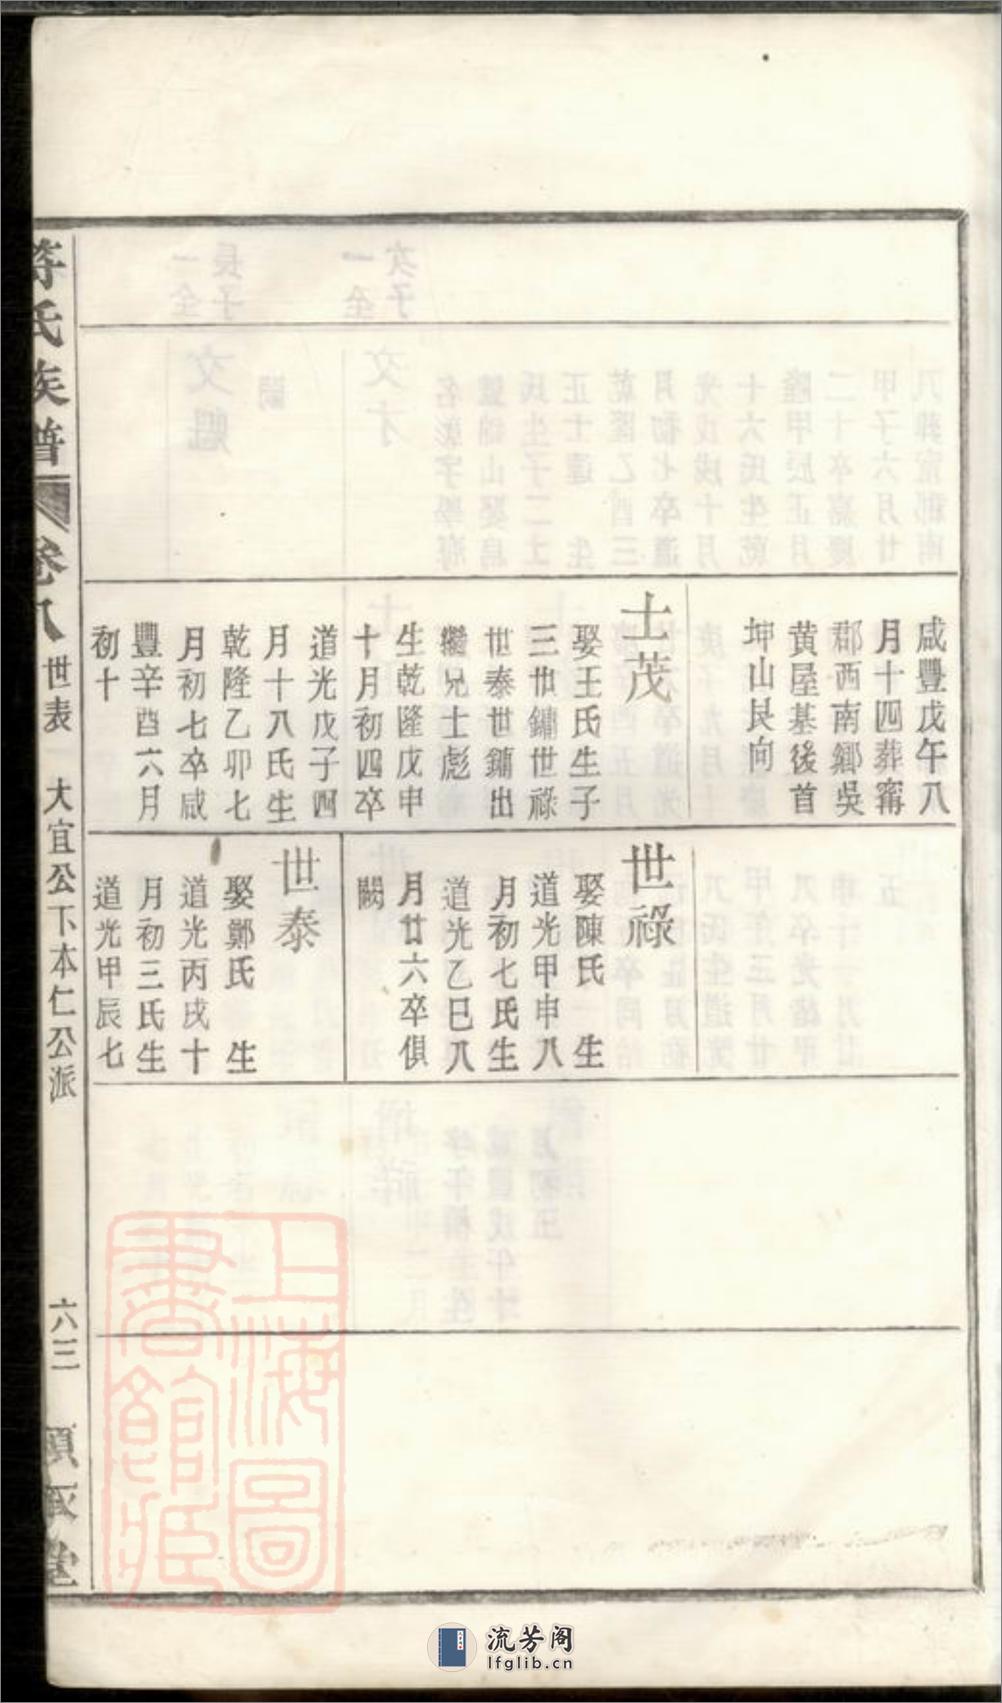 咸豐戊午八
月十四葬甯
郡西南鄉吳
黄屋基後首
坤山艮向
士茂
娶王氏生子
三世鏽世祿
世泰世鏽出
繼兄士彪
生乾隆戊申
十月初四卒
道光戊子四
月十八氏生
乾隆乙卯七
月初七卒咸
豐辛酉六月
初十
世祿
娶陳氏 生
道光甲申八
月初七氏生
道光乙巳八
月廿六卒俱
闕
世泰
娶鄭氏 生
道光丙戌十
月初三氏生
道光甲辰七
氏族譜
卷八
世表
大宜公下本仁公派
六三
堂
上海圖
書館藏
流芳阁
lfglib.cn